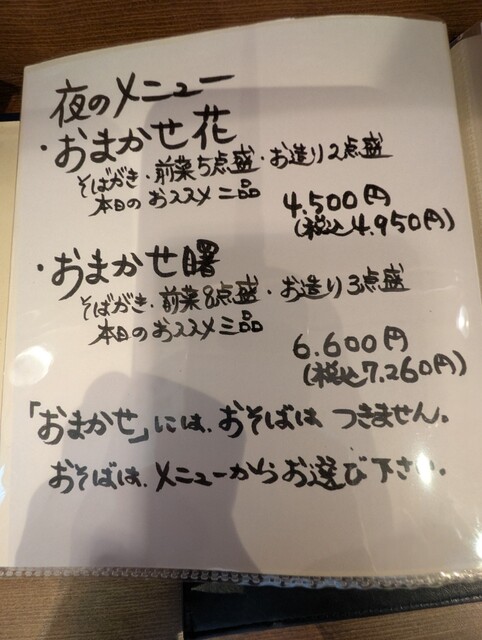 夜のメニュー
・おまかせ花
そばがき・前菜5点盛・お造り2点盛
本日のおススメ二品
4.500円
(税込4.950円)
・おまかせ曙
そばがき・前菜8点盛・お造り3点盛
本日のおススメ三品
6.600円
(税込7.260円)
「おまかせ」には、おそばは つきません。
おそばは、メニューからお選び下さい。